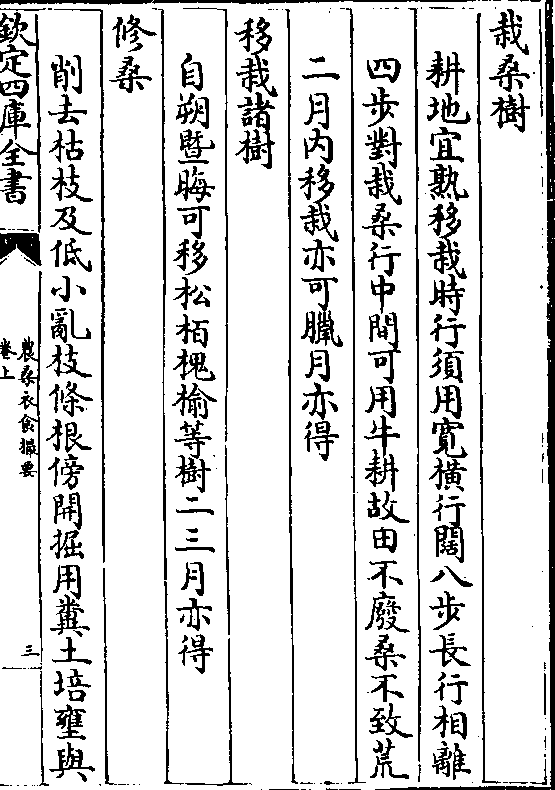 栽桑樹
耕地宜熟移栽時行須用寛橫行闊八步長行相離
四步對栽桑行中間可用牛耕故田不廢桑不致荒
二月内移栽亦可臘月亦得
移栽諸樹
自朔暨晦可移松栢槐榆等樹二三月亦得
修桑
削去枯枝及低小亂枝條根傍開掘用糞土培壅與
欽定四庫全書
農桑衣食撮要
卷上
三